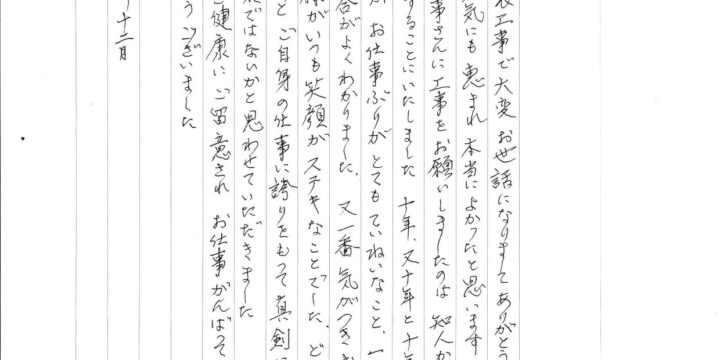 工事で大変お世話になりましてありがとう
気にも恵まれ本当によかったと思います
事さんに工事をお願いしましたのは 知人か
することにいたしました 十年、又十年と十年
お仕事ぶりがとてもていねいなこと、一
合がよくわかりました。又一番気がつきま
様がいつも笑顔がステキなことでした。ど
と ご自身の仕事に誇りをもって真剣に
ではないかと思わせていただきました
ご健康にご留意され お仕事がんばって
うございました
十二月